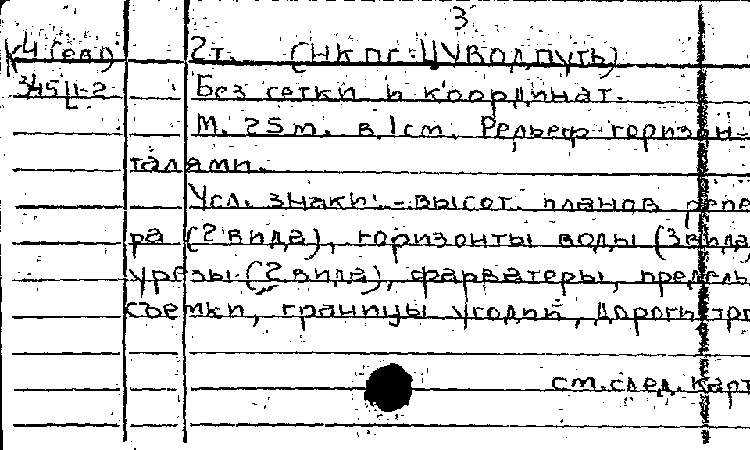 3
К4 (евд) 2т. (НКПС-ЦУВОДПУТЬ)
345Ц-2 Без сетки и координат.
М. 25т. в 1см. Рельеф горизон-
талями.
Усл. знаки:- высот. планов репе
ра (2 вида), горизонты воды (3 вида)
урезы (2 вида), фарватеры, предель
съемки, границы угодий, дороги
см. след. карт